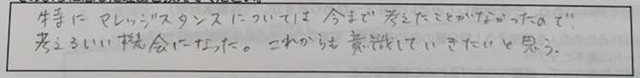 特にマレッジスタンスについては今まで考えたことがなかったので、
考えるいい機会になった。これからも意識していきたいと思う。